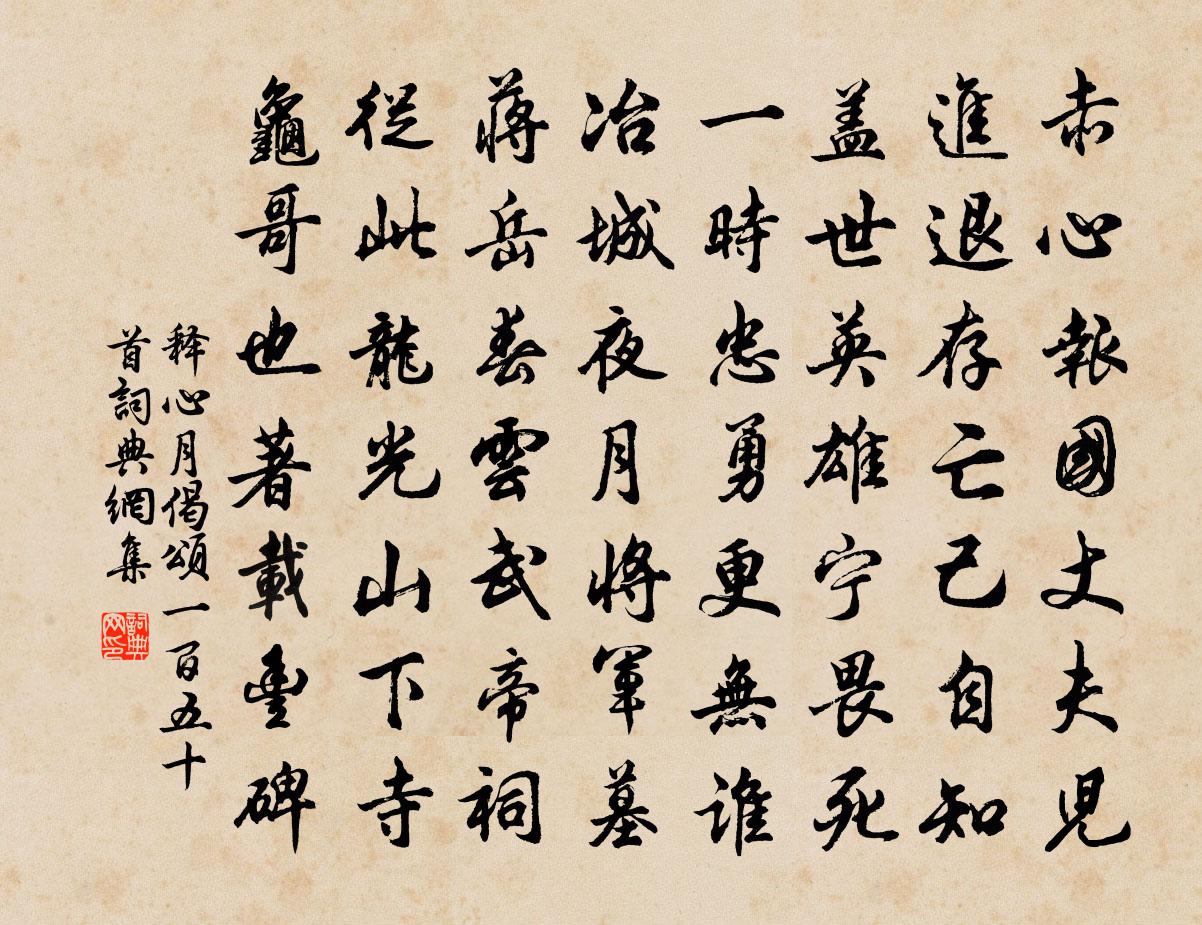 赤心報國丈夫兒
進退存亡己自知
盖世英雄宁畏死
一時忠勇更無誰
冶城夜月將軍墓
蔣岳春雲武帝祠
從此龍光山下寺
龜哥也著載豊碑
释心月偈頌一百五十
首詞典網集
詞典
网印